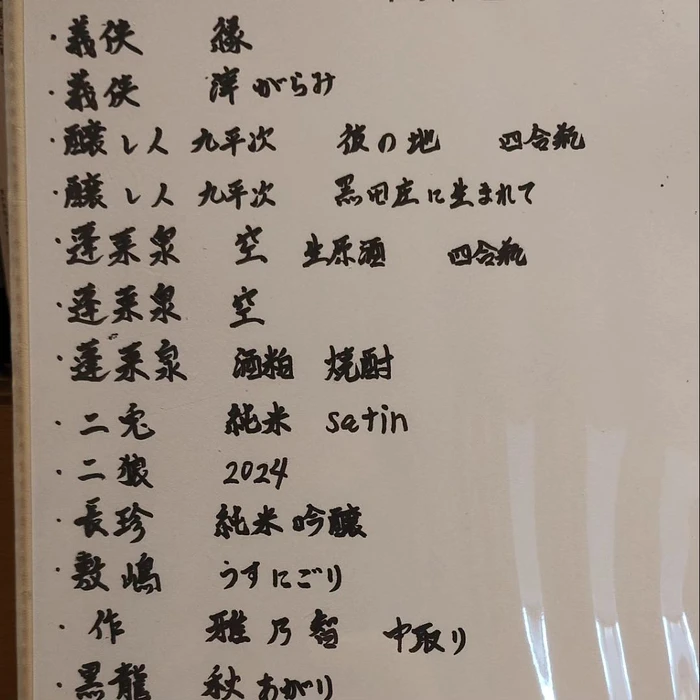 ・義侠 縁
・義侠 滓がらみ
・醸し人 九平次 彼の地 四合瓶
・醸し人 九平次 黒田庄に生まれて
・蓬莱泉 空 生原酒 四合瓶
・蓬莱泉 空
・蓬莱泉 酒粕 焼酎
・二兎 純米 satin
・二狼 2024
・長珍 純米吟醸
・敷嶋 うすにごり
・作 雅乃智 中取り
・黒龍 秋あがり